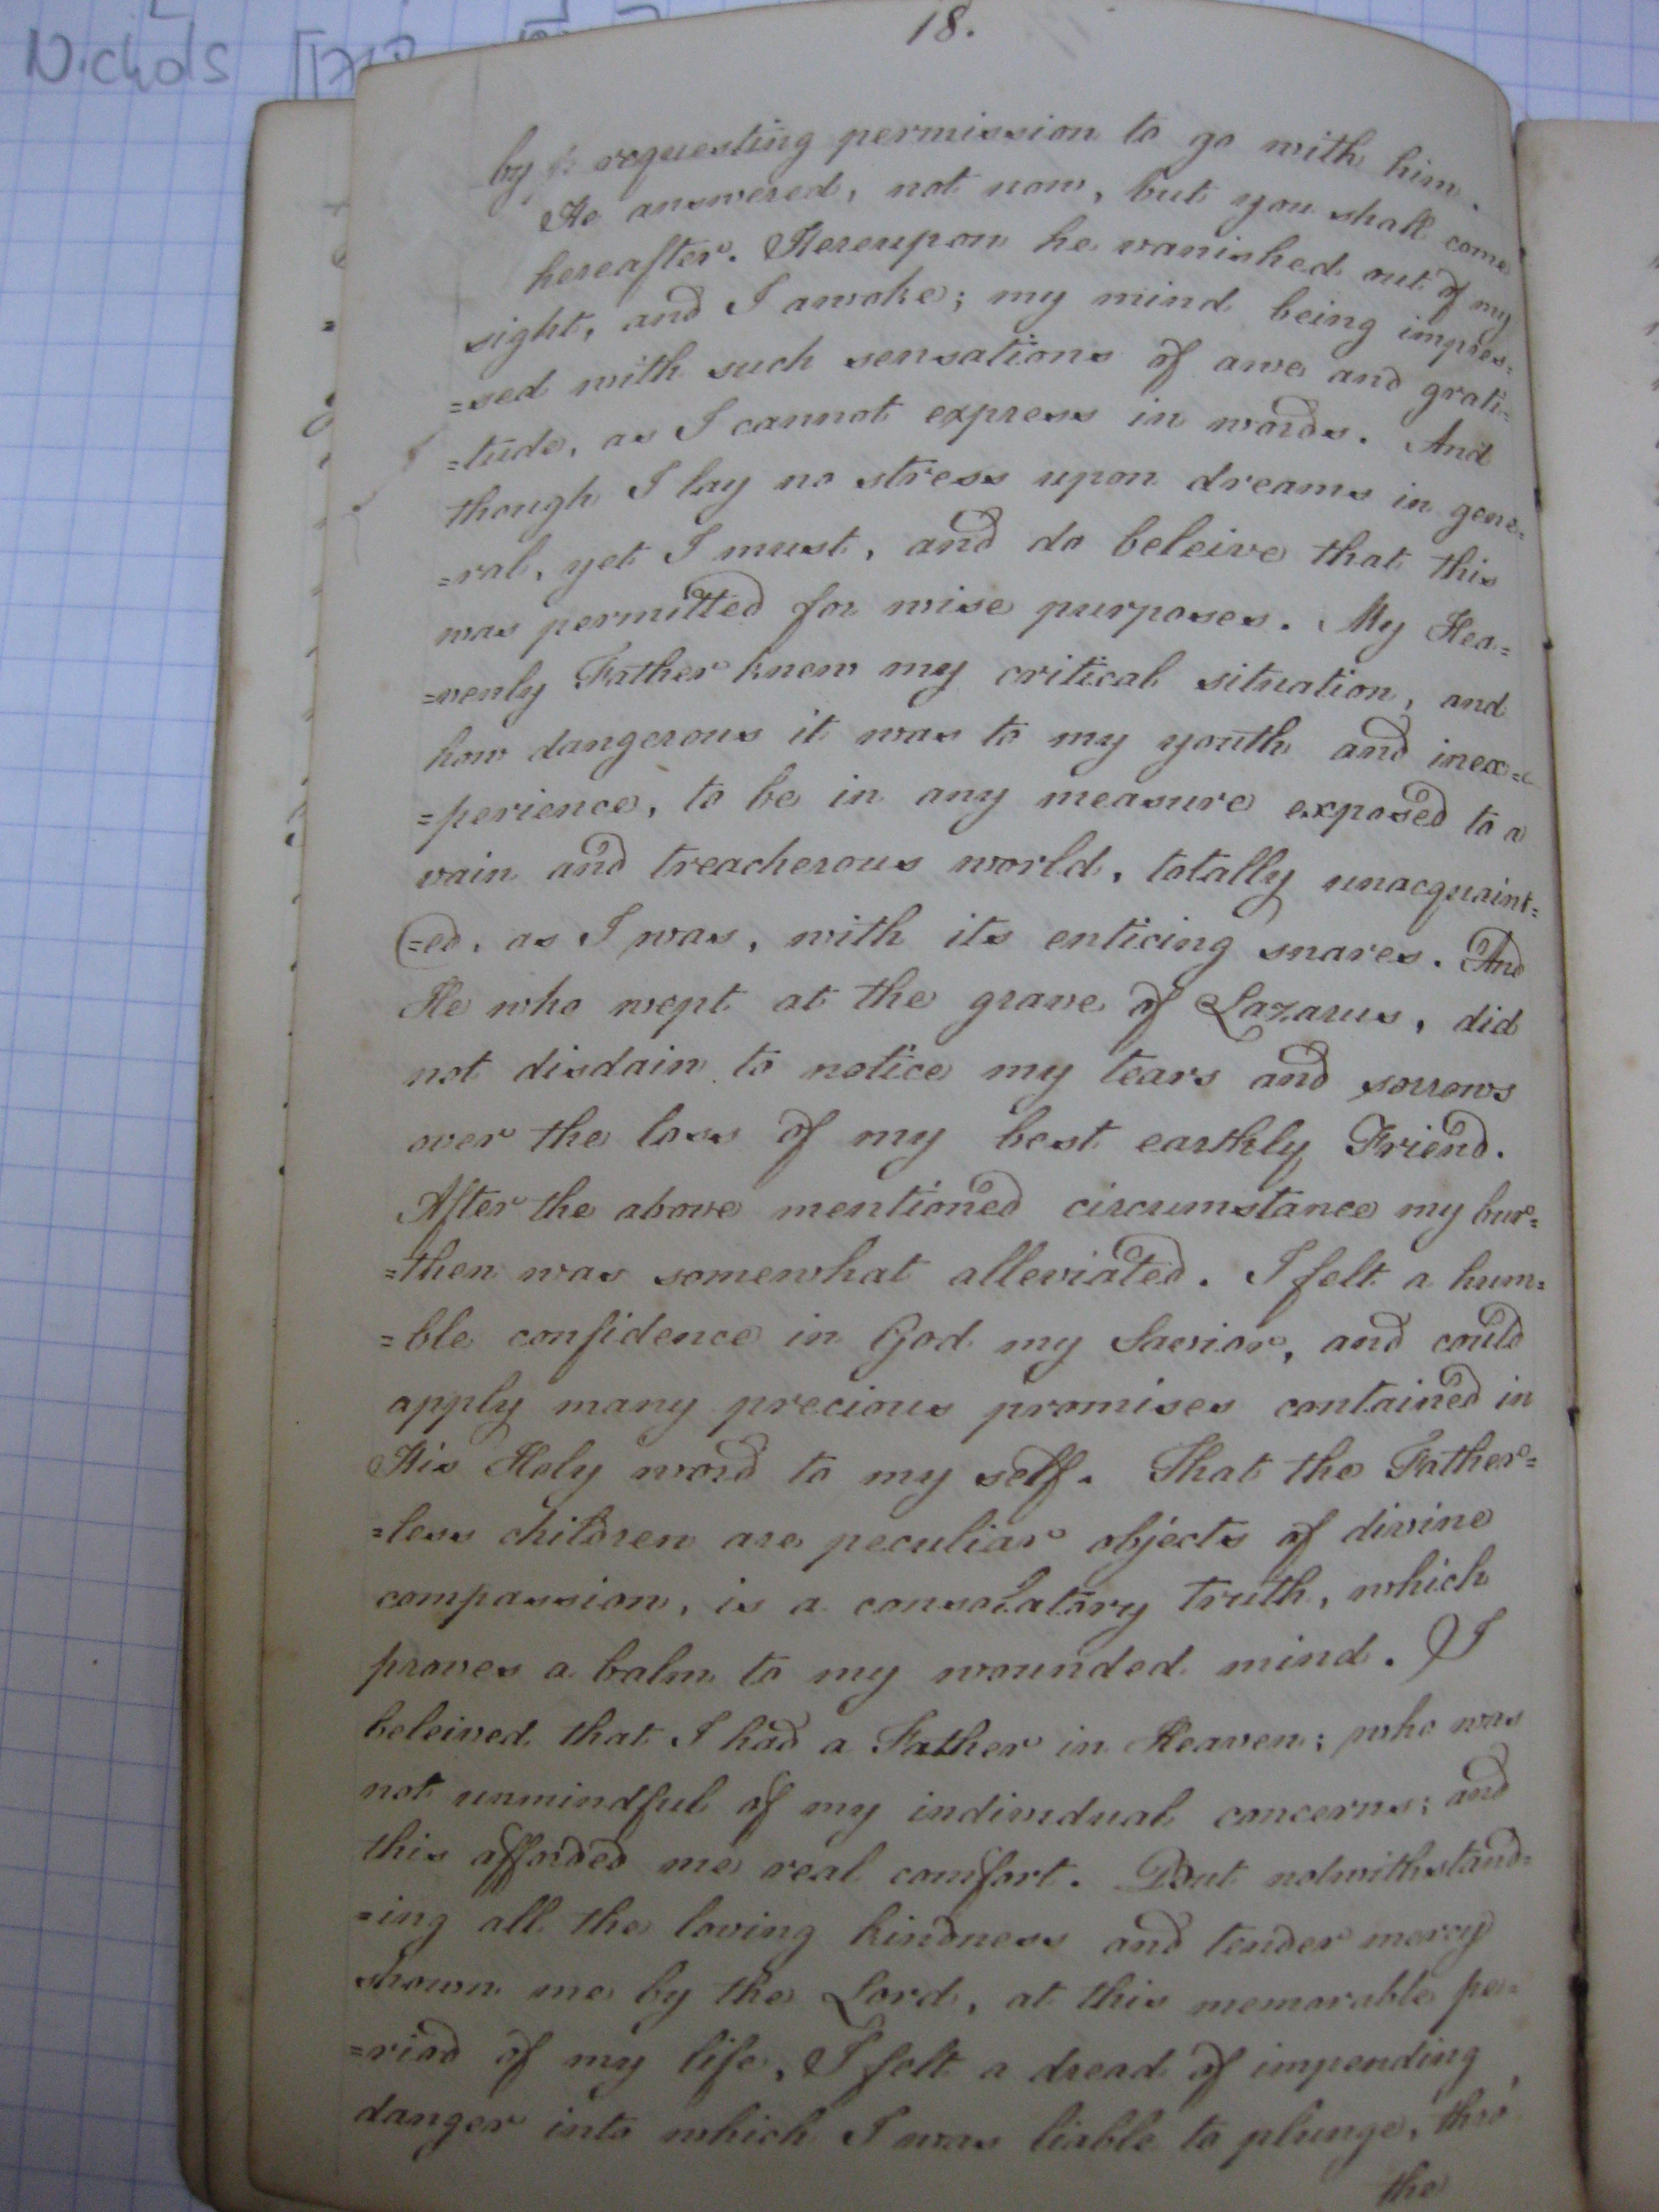 Nichols
18.
by requesting permission to go with him.
He answered, not now, but you shall come
hereafter. Hereupon he vanished out of my
sight, and I awoke; my mind being impres=
=sed with such sensations of awe and grati=
=tude, as I cannot express in words. And
though I lay no stress upon dreams in gene=
=ral, yet I must, and do beleive that this
was permitted for wise purposes. My Hea=
=venly Father knew my critical situation, and
how dangerous it was to my youth and inex=
=perience, to be in any measure exposed to a
vain and treacherous world, totally unacquaint=
=ed, as I was, with its enticing snares. And
He who wept at the grave of Lazarus, did
not disdain to notice my tears and sorrows
over the loss of my best earthly Friend.
After the above mentioned circumstance my bur=
=then was somewhat alleviated. I felt a hum=
=ble confidence in God my Savior, and could
apply many precious promises contained in
His Holy word to my self. That the Father=
=less children are peculiar objects of divine
compassion, is a consolatory truth, which
proves a balm to my wounded mind. I
beleived that I had a Father in Heaven; who was
not unmindful of my individual concerns; and
this afforded me real comfort. But notwithstand=
=ing all the loving kindness and tender mercy
shown me by the Lord, at this memorable pe=
=riod of my life, I felt a dread of impending
danger into which I was liable to plunge, thro'
the